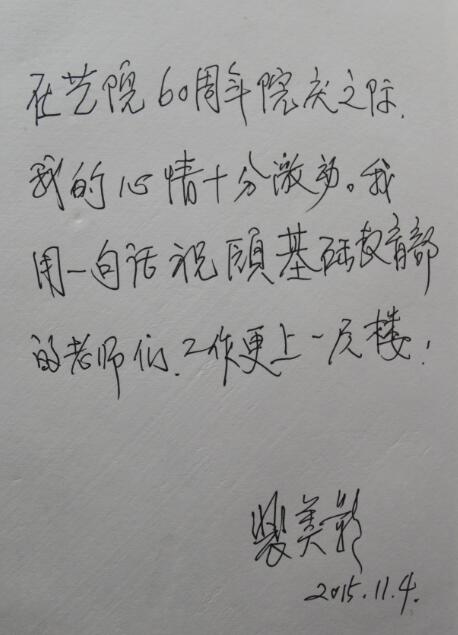 在艺院60周年院庆之际,
我的心情十分激动。我
用一句话祝愿基础教育部
的老师们、工作更上一层楼!
美影
2015.11.4.